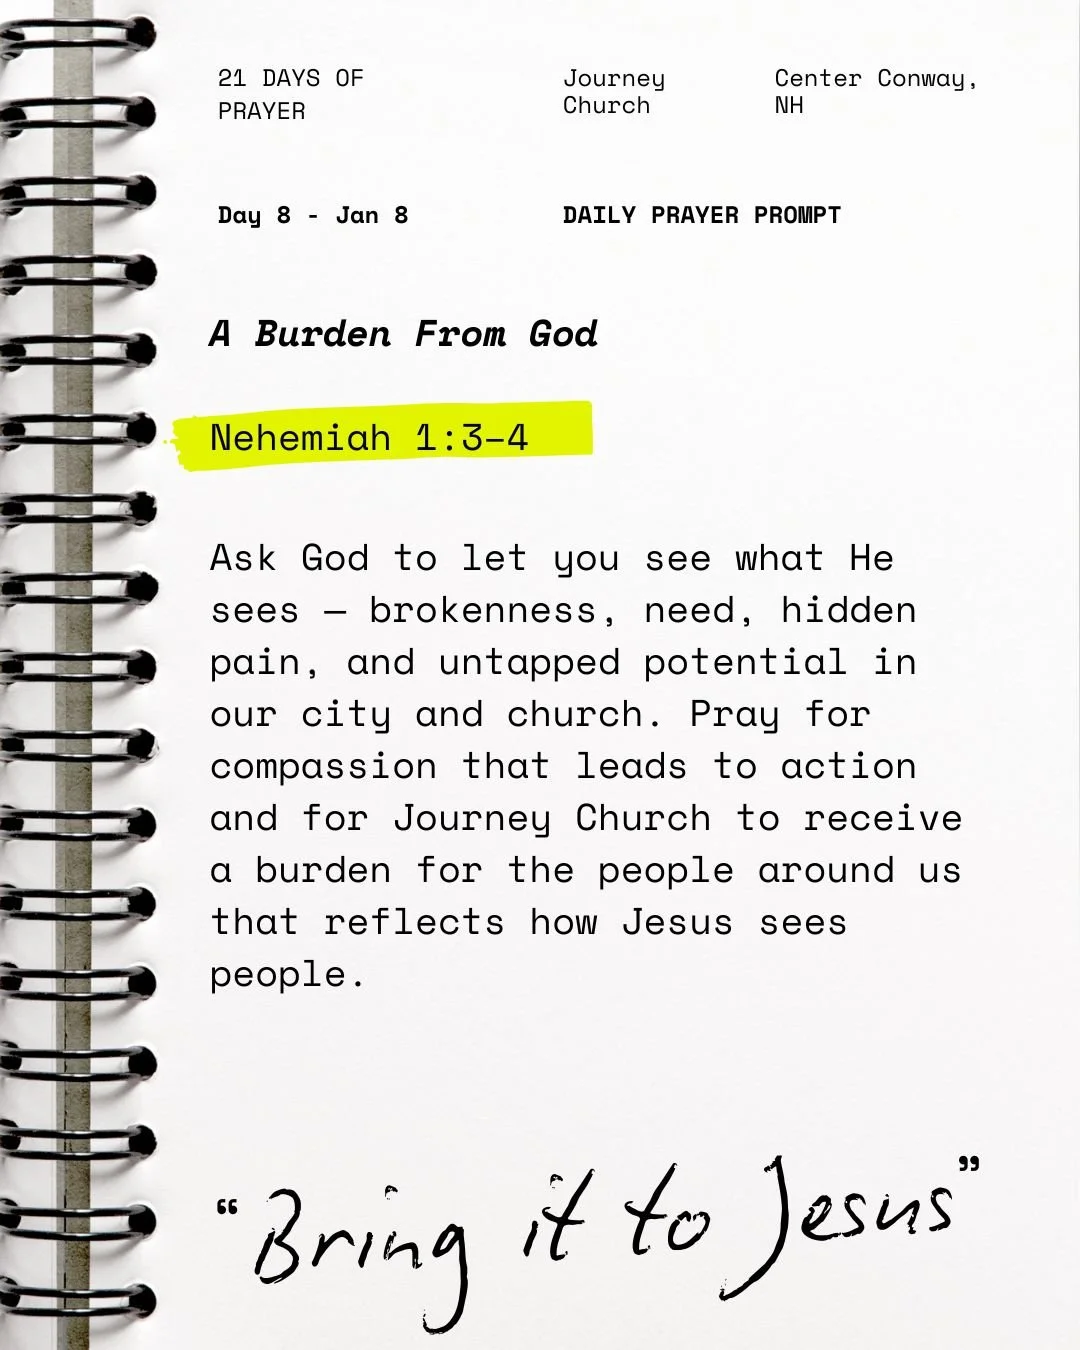 21 DAYS OF
PRAYER
Journey
Church
Center Conway,
NH
Day 8 - Jan 8
DAILY PRAYER PROMPT
A Burden From God
Nehemiah 1:3–4
Ask God to let you see what He
sees — brokenness, need, hidden
pain, and untapped potential in
our city and church. Pray for
compassion that leads to action
and for Journey Church to receive
a burden for the people around us
that reflects how Jesus sees
people.
“Bring it to Jesus”